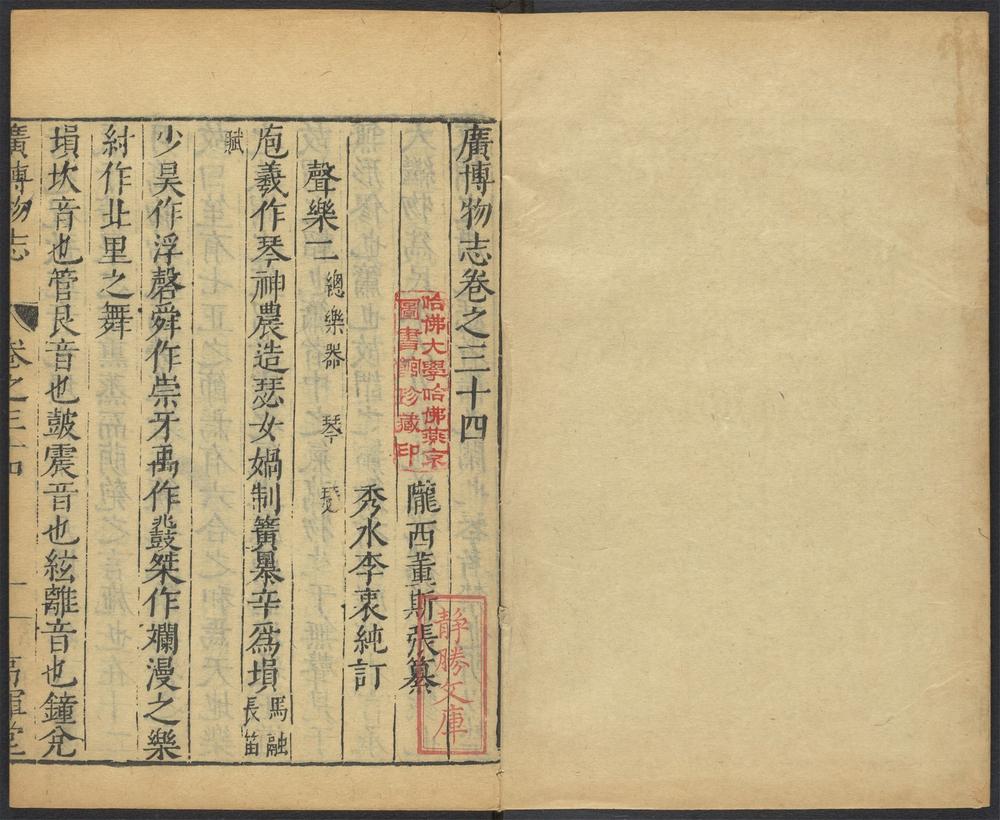 廣博物志卷之三十四
隴西董斯張纂
秀水李衷純訂
聲樂二 總樂器 琴 瑟
庖羲作琴神農造瑟女媧制簧暴辛爲塤馬融長笛
賦
少昊作浮磬舜作崇牙禹作鼗桀作爛漫之樂
紂作北里之舞
塤坎音也管艮音也皷震音也絃離音也鐘兊
廣博物志 卷之三十四 一 高暉堂
哈佛大學哈佛燕京
圖書館珍藏印
静勝文庫